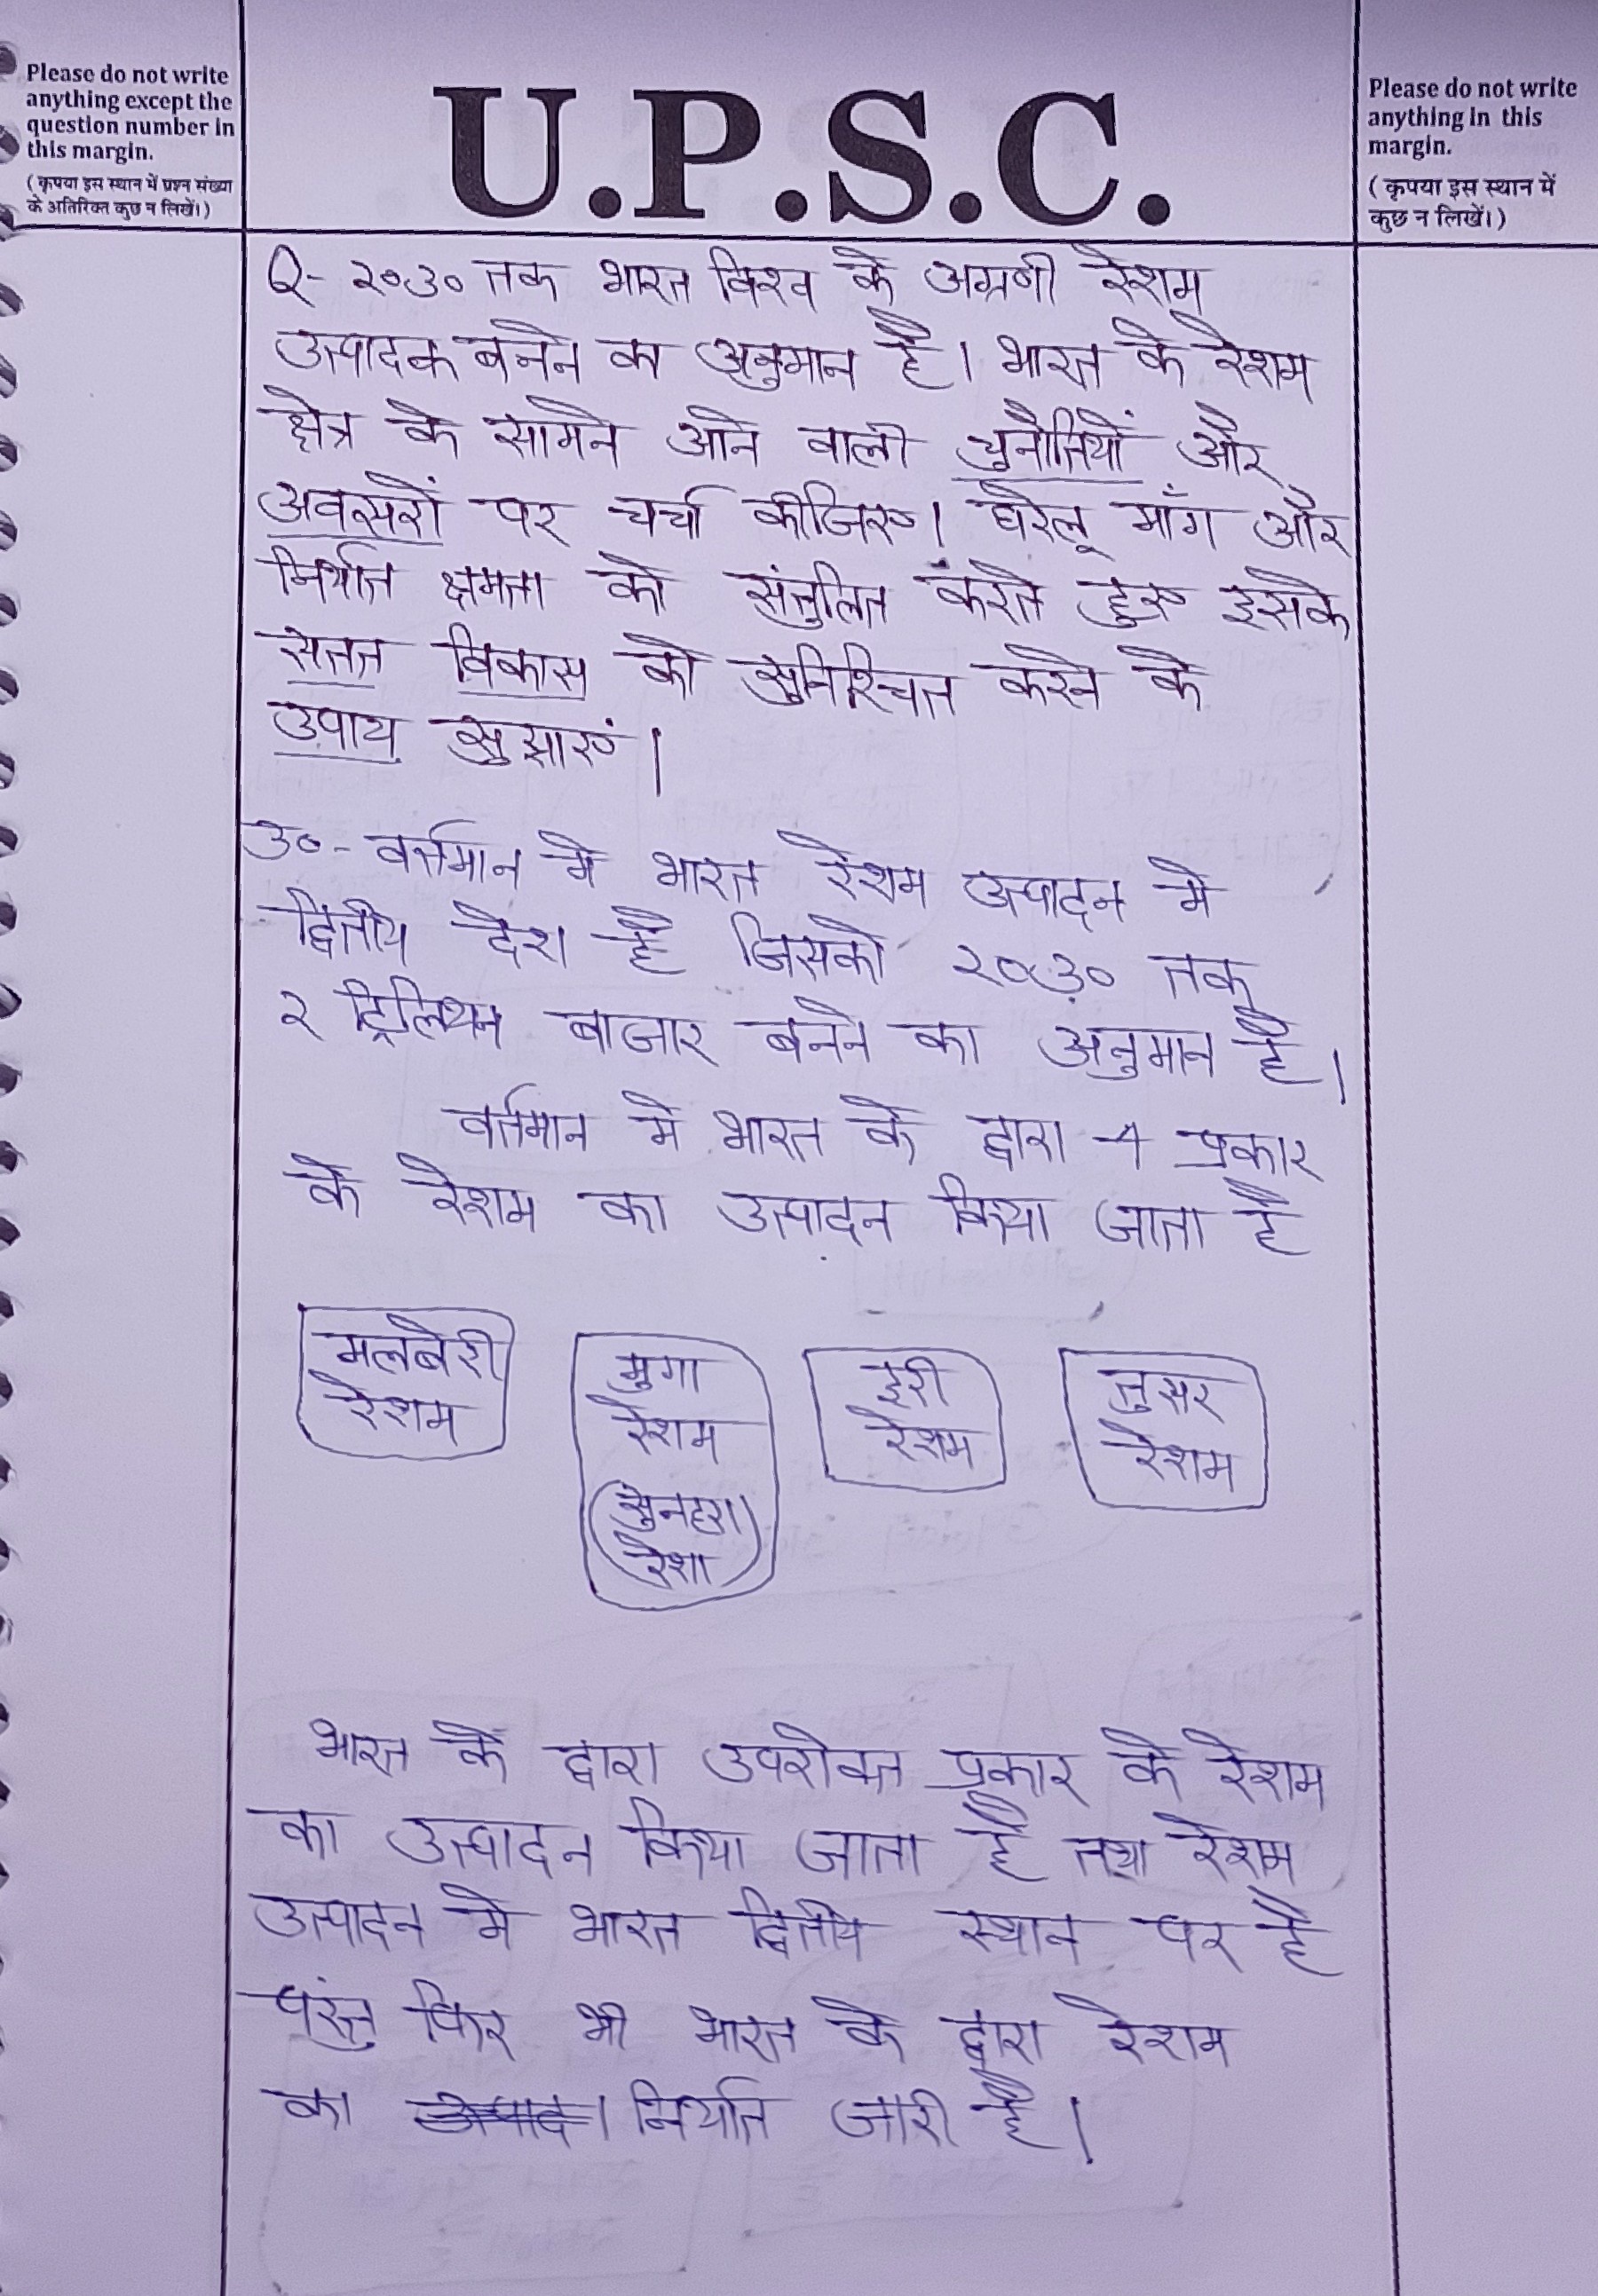 Please do not write
anything except the
question number in
this margin.
(कृपया इस स्थान में प्रश्न संख्या
के अतिरिक्त कुछ न लिखें।)
U.P.S.C.
Please do not write
anything in this
margin.
(कृपया इस स्थान में
कुछ न लिखें।)
Q- २०३० तक भारत विश्व के अग्रणी रेशम
उत्पादक बनने का अनुमान है। भारत के रेशम
क्षेत्र के सामने आने वाली चुनौतियों और
अवसरों पर चर्चा कीजिए। घरेलू माँग और
निर्यात क्षमता को संतुलित करते हुए इसके
सतत विकास को सुनिश्चित करने के
उपाय सुझाएं।
उ०- वर्त्तमान मे भारत रेशम उत्पादन मे
द्वितीय देश है जिसको २०३० तक
२ ट्रिलियन बाजार बनने का अनुमान है।
वर्तमान मे भारत के द्वारा 4 प्रकार
के रेशम का उत्पादन किया जाता है
मलबेरी
रेशम
मुगा
रेशम
(सुनहरा
रेशा)
इरी
रेशम
तुसर
रेशम
भारत के द्वारा उपरोक्त प्रकार के रेशम
का उत्पादन किया जाता है तथा रेशम
उत्पादन मे भारत द्वितीय स्थान पर है
परंतु फिर भी भारत के द्वारा रेशम
का निर्यात जारी है।